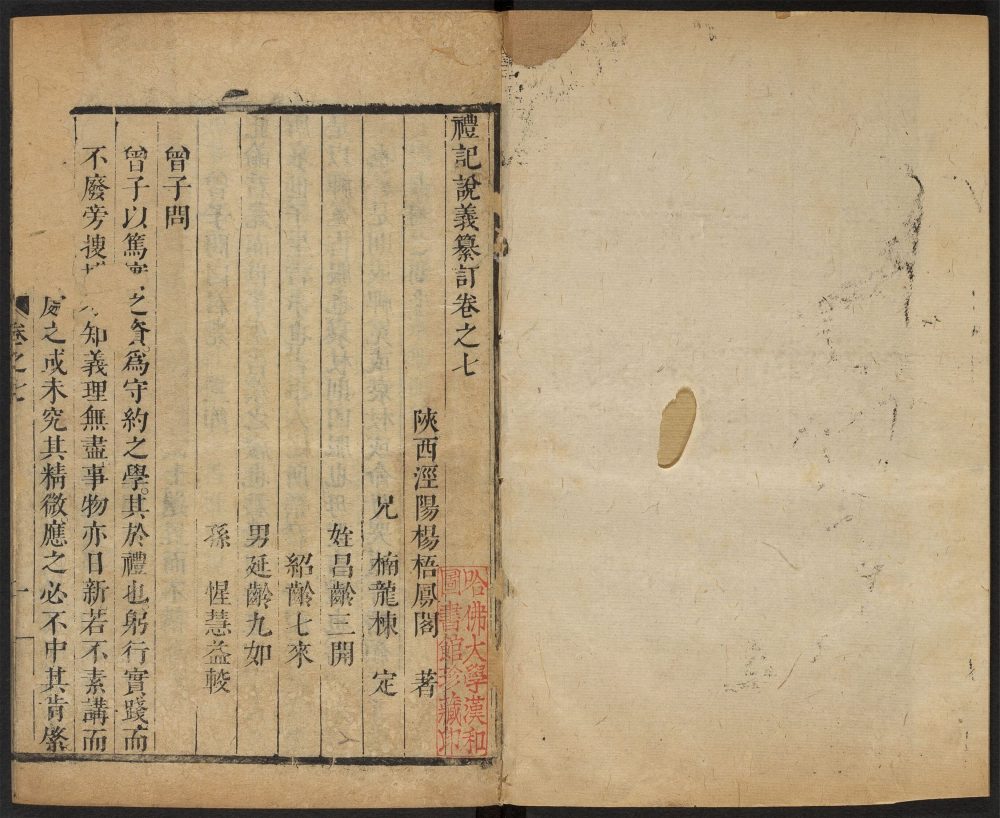 禮記說義纂訂卷之七
陝西涇陽楊梧鳳閣 著
兄 楠龍棟 定
姪昌齡三開
紹齡七來
男延齡九如
孫 惺慧益較
曾子問
曾子以篤實之資爲守約之學其於禮也躬行實踐而
不廢旁搜 知義理無盡事物亦日新若不素講而
處之或未究其精微應之必不中其肯綮
卷之七
一
哈佛大學漢和
圖書館珍藏印